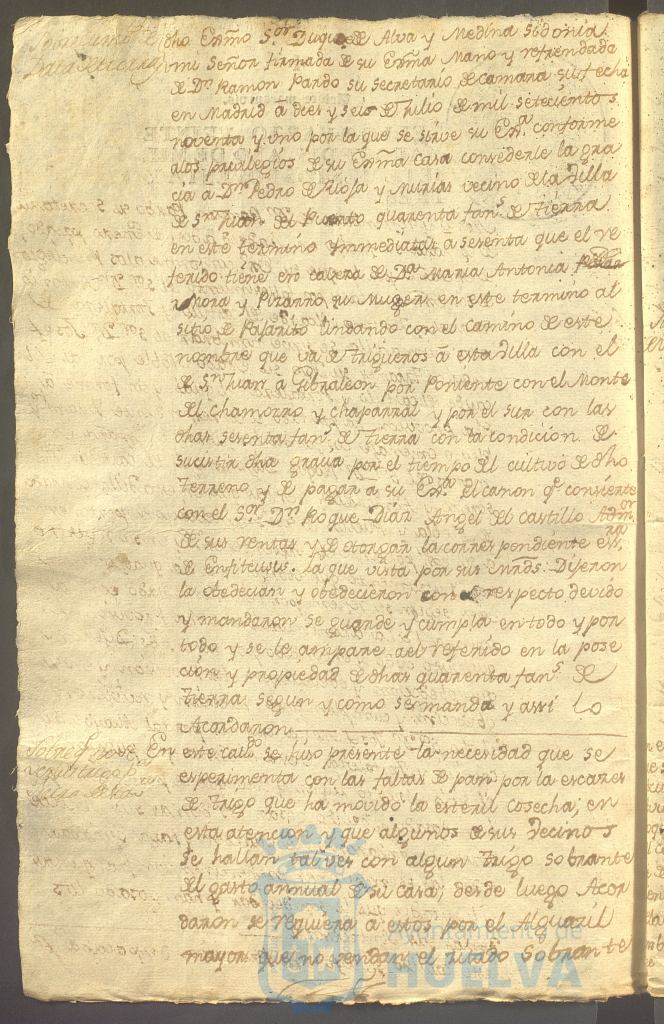 dho Exmo Sor Duque de Alva y Medina Sidonia
mi Señor firmada de su Exma Mano y refrendada
de Dn Ramon Pardo su secretario de camara su fecha
en Madrid a diez y seis de Julio de mil setecientos
noventa y uno por la que se sirve su Exa conforme
a los privilegios de su Exma casa concederle la gra
cia a Dn Pedro de Rioja y Murias vecino de la Villa
de Sn Juan del Puerto quarenta fans de tierra
en este termino ymmediatas a sesenta que el re
ferido tiene en cavera de Da Maria Antonia
Mora y Pizarro su Muger en este termino al
sitio de Pajarito lindando con el camino de este
nombre que va de trigueros a esta villa con el
de Sn Juan a Gibraleon por Poniente con el Monte
del chamorro y chaparral y por el sur con las
dhas sesenta fans de tierra con la condicion de
sucistir dha gracia por el tiempo del cultivo de dho
terreno y de pagar a su Exa el canon qe consiente
con el Sor Dn Roque Dian Angel del castillo Admor
de sus rentas y de otorgar la correspondiente ess.ra
de enfiteusus. la que vista por sus mrds. Dijeron
la obedecian y obedecieron con el respecto devido
y mandaron se guarde y cumpla en todo y por
todo y se le ampare al referido en la pose
cion y propiedad de dhas quarenta fans de
tierra segun y como se manda y assi lo
Acordaron
En este cavdo se hiso presente la necesidad que se
esperimenta con las faltas de pan por la escases
de trigo que ha movido la esteril cosecha; en
esta atencion y que algunos de sus vecinos
se hallan tal ves con algun trigo sobrante
del gasto annual de su casa; desde luego Acor
daron se requiera a estos por el Alguazil
mayor que no vendan el citado sobrante
Ayuntamiento de
HUELVA